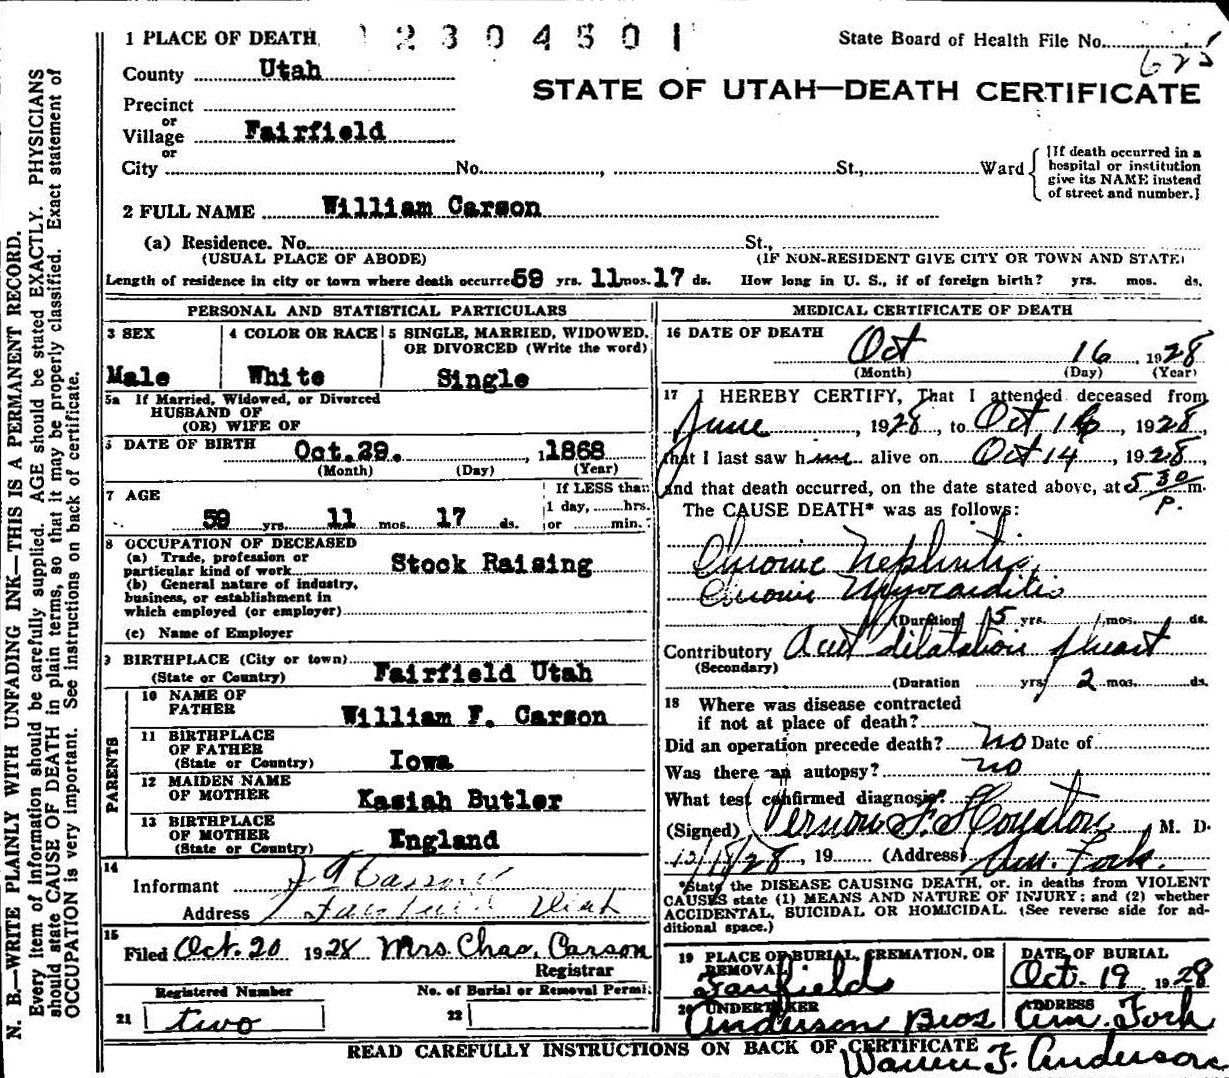 1 PLACE OF DEATH 12304501 State Board of Health File No. 625
County Utah
STATE OF UTAH—DEATH CERTIFICATE
Precinct
or
Village Fairfield
or
City No. , St., Ward
[If death occurred in a
hospital or institution
give its NAME instead
of street and number.]
2 FULL NAME William Carson
(a) Residence. No. St.,
(USUAL PLACE OF ABODE) (IF NON-RESIDENT GIVE CITY OR TOWN AND STATE)
Length of residence in city or town where death occurre 59 yrs. 11 mos. 17 ds. How long in U. S., if of foreign birth? yrs. mos. ds.
PERSONAL AND STATISTICAL PARTICULARS
3 SEX 4 COLOR OR RACE 5 SINGLE, MARRIED, WIDOWED,
OR DIVORCED (Write the word)
Male White Single
5a If Married, Widowed, or Divorced
HUSBAND OF
(OR) WIFE OF
DATE OF BIRTH Oct. 29. , 1868
(Month) (Day) (Year)
7 AGE If LESS than
1 day, hrs.
59 yrs. 11 mos. 17 ds. or min.
8 OCCUPATION OF DECEASED
(a) Trade, profession or
particular kind of work Stock Raising
(b) General nature of industry,
business, or establishment in
which employed (or employer)
(c) Name of Employer
9 BIRTHPLACE (City or town)
(State or Country) Fairfield Utah
PARENTS
10 NAME OF
FATHER William F. Carson
11 BIRTHPLACE
OF FATHER
(State or Country) Iowa
12 MAIDEN NAME
OF MOTHER Kasiah Butler
13 BIRTHPLACE
OF MOTHER
(State or Country) England
14
Informant Carson
Address Fairfield Utah
15
Filed Oct. 20 1928 Mrs. Chas. Carson
Registrar
Registered Number No. of Burial or Removal Permi.
21 two 22
MEDICAL CERTIFICATE OF DEATH
16 DATE OF DEATH Oct 16, 1928
(Month) (Day) (Year)
17 I HEREBY CERTIFY, That I attended deceased from
June , 1928, to Oct 16, 1928,
that I last saw him alive on Oct 14, 1928,
and that death occurred, on the date stated above, at 5 30/P. m.
The CAUSE DEATH* was as follows:
Chronic Nephritis
Chronic Myocarditis
(Duration) 5 yrs. mos. ds.
Contributory Acute dilatation heart
(Secondary)
(Duration yrs. 2 mos. ds.
18 Where was disease contracted
if not at place of death?
Did an operation precede death? no Date of
Was there an autopsy? no
What test confirmed diagnosis?
(Signed) Vernon F. Houston, M. D.
10/18/28, 19 (Address) Am. Fork.
*State the DISEASE CAUSING DEATH, or. in deaths from VIOLENT
CAUSES state (1) MEANS AND NATURE OF INJURY; and (2) whether
ACCIDENTAL, SUICIDAL OR HOMICIDAL. (See reverse side for ad-
ditional space.)
19 PLACE OF BURIAL, CREMATION, OR
REMOVAL DATE OF BURIAL
Fairfield Oct. 19 1928
20 UNDERTAKER ADDRESS
Anderson Bros Am. Fork
READ CAREFULLY INSTRUCTIONS ON BACK OF CERTIFICATE
Warren F. Anderson
N. B.—WRITE PLAINLY WITH UNFADING INK—THIS IS A PERMANENT RECORD.
Every item of information should be carefully supplied. AGE should be stated EXACTLY. PHYSICIANS
should state CAUSE OF DEATH in plain terms, so that it may be properly classified. Exact statement of
OCCUPATION is very important. See instructions on back of certificate.